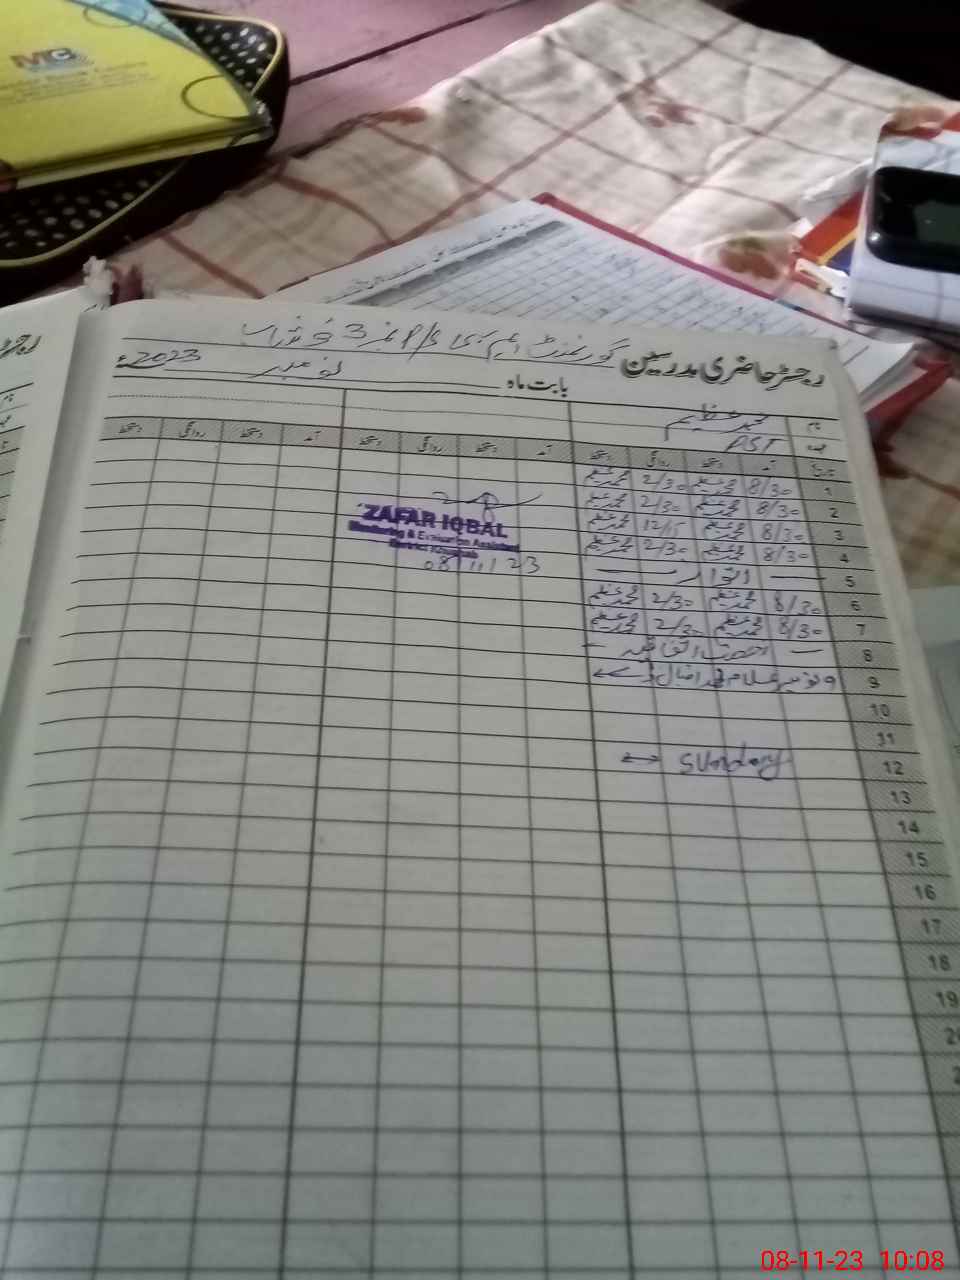 MC
رجسٹر حاضری مدرسین گورنمنٹ ایم سی P/S نمبر 3 خوشاب
بابت ماہ نومبر 2023ء
نام محمد عظیم
عہدہ PST
تاریخ آمد دستخط روانگی دستخط آمد دستخط روانگی دستخط
1 8/30 محمد عظیم 2/30 محمد عظیم
2 8/30 محمد عظیم 2/30 محمد عظیم
3 8/30 محمد عظیم 12/15 محمد عظیم
4 8/30 محمد عظیم 2/30 محمد عظیم
5 اتوار
6 8/30 محمد عظیم 2/30 محمد عظیم
7 8/30 محمد عظیم 2/30 محمد عظیم
8 رخصت اتفاقیہ
9 9 نومبر علامہ محمد اقبال ڈے
10
11
12 Sunday
13
14
15
16
17
18
19
ZAFAR IQBAL
Monitoring & Evaluation Assistant
District Khushab
08/11/23
08-11-23 10:08